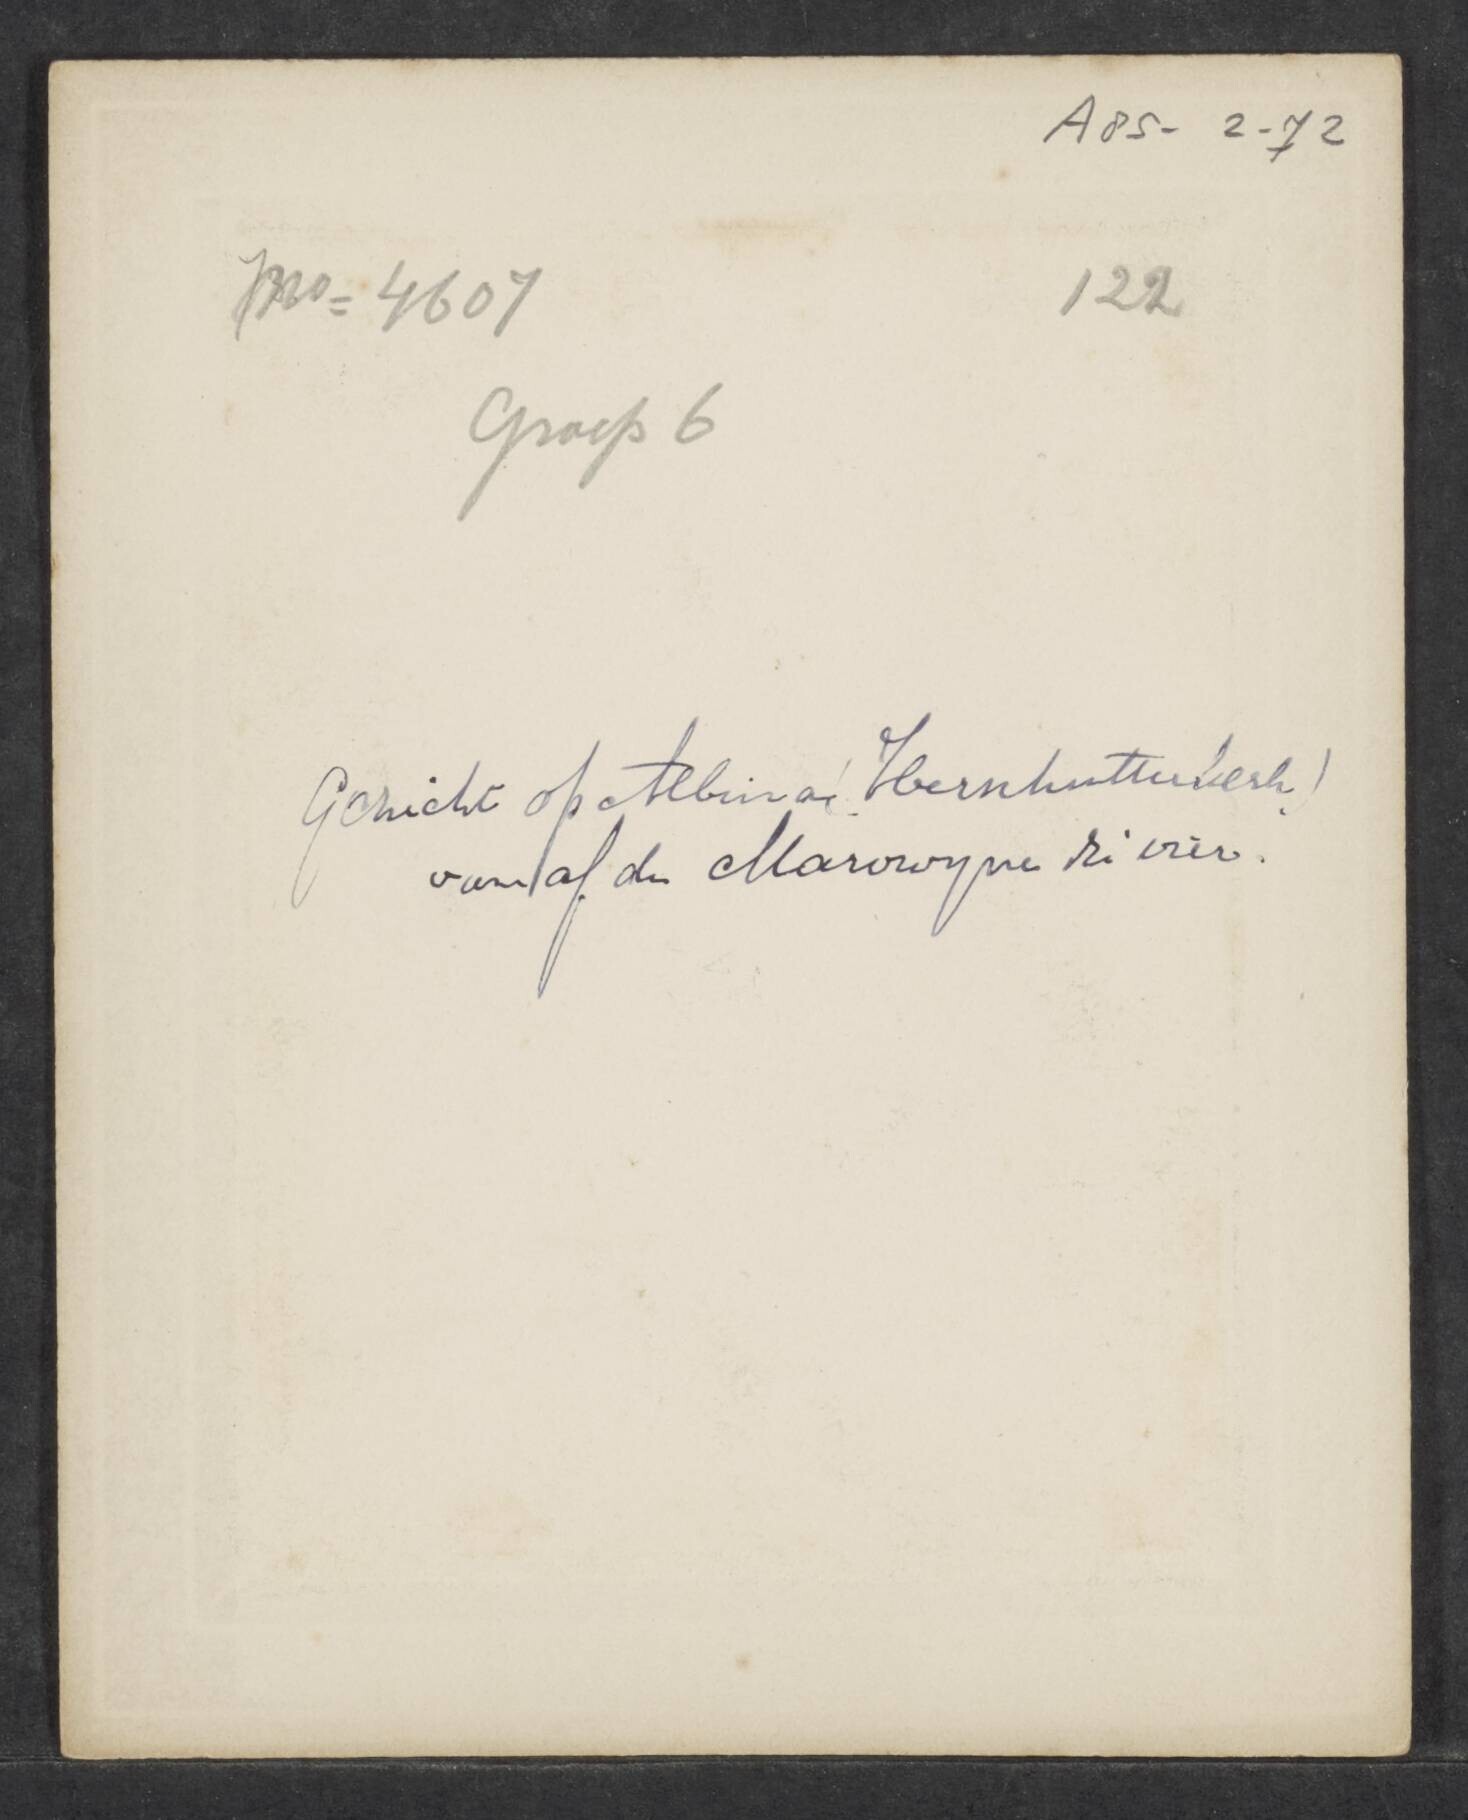 A85- 2-72
4607
122
Groep 6
Gezicht op Albina (Hernhutterkerk)
vanaf de Marowyne rivier.